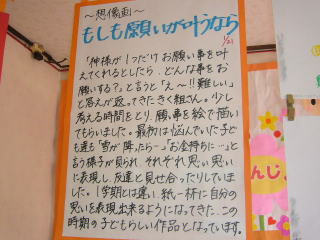 ～想像画～
もしも願いが叶うなら
1/21
「神様が1つだけお願い事を叶
えてくれるとしたら…どんな事をお
願いする？」と言うと「え～!!難しい」
と答えが返ってきたきく組さん。少し
考える時間をとり、願い事を絵で描い
てもらいました。最初は悩んでいた子ど
も達も「雪が降ったら…」「お金持ちに…」と
言う様子が見られ、それぞれ思い思い
に表現し、友達と見せ合ったりしていま
した。1学期とは違い、紙一杯に自分の
思いを表現出来るようになってきた、この
時期の子どもらしい作品となっています。
んじ